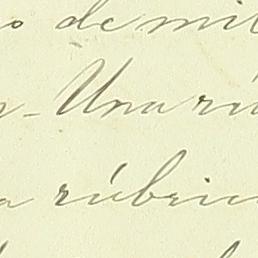 o de mil
- Una rú
a rúbric